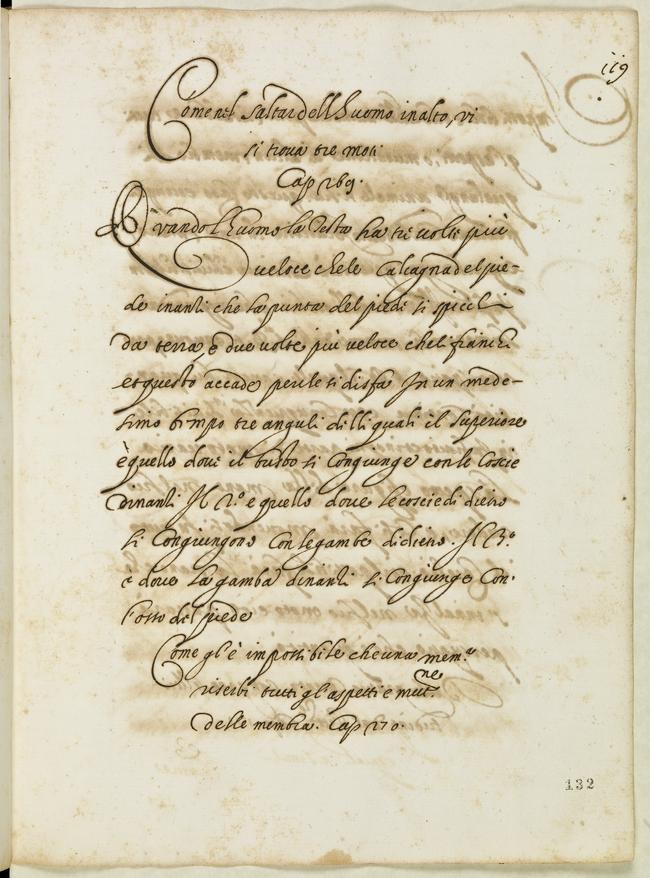 119
Come nel saltar dell'huomo in alto, vi
si trova tre moti
Cap 269.
Quando l'huomo la Testa ha tre volte più
veloce che le Calcagna del pie-
de inanti che la punta del piedi si spicchi
da terra, e due volte più veloce che li fianchi
et questo accade perche si disfa In un mede-
simo tempo tre anguli delli quali il superiore
è quello dove il busto si Congiunge con le Coscie
dinanti Il 2.º e quello dove le coscie di dietro
si Congiungono Con le gambe didietro. Il 3.º
è dove la gamba dinanti si Congiunge Con.
l'osso del piede
Come gl'è impossibile che una mem.ª
riserbi tutti gl'aspetti e mut.ne
delle membra. Cap 270.
132